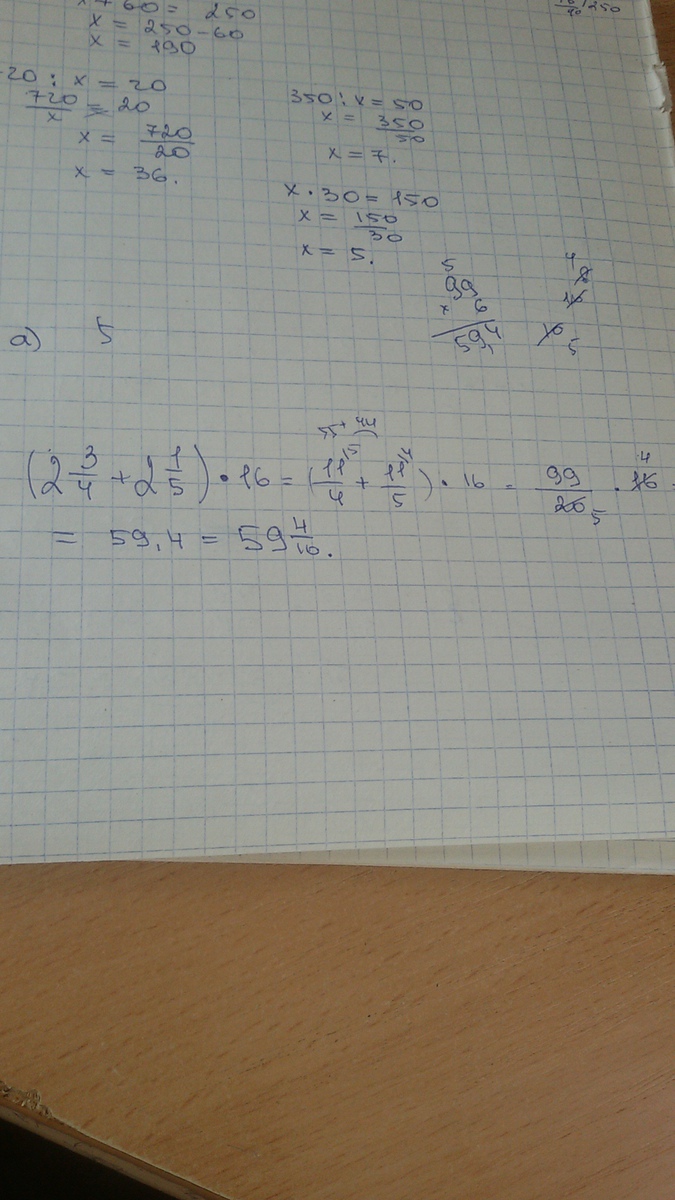 x + 60 = 250
x = 250 - 60
x = 190
20 : x = 20
720/x = 20
x = 720/20
x = 36.
350 : x = 50
x = 350/50
x = 7.
x · 30 = 150
x = 150/30
x = 5.
5
99
x 6
594
4
8
16
5
а) 5
55 + 44
(2 3/4 + 2 1/5) · 16 = (11/4 + 11/5) · 16 = 99/20 5 · 16 4
= 59,4 = 59 4/10.